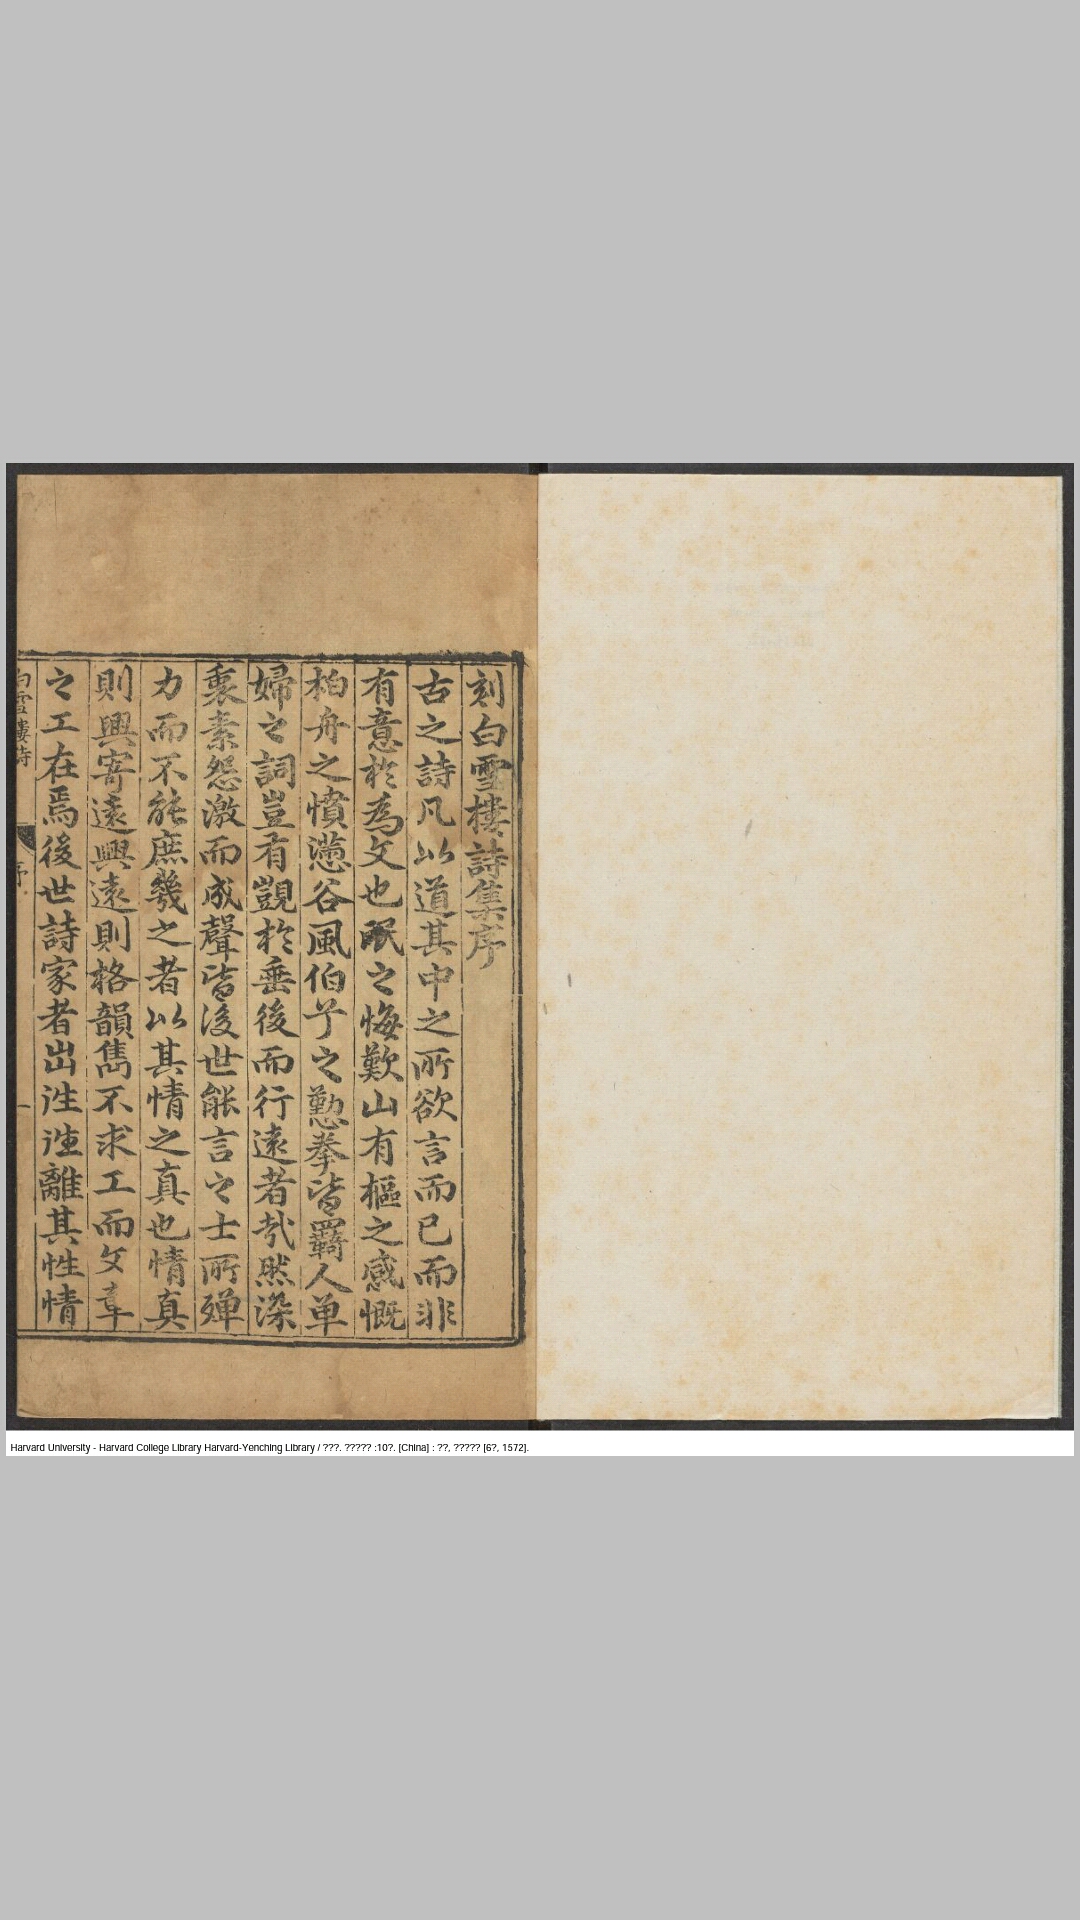 刻白雪樓詩集序
古之詩凡以道其中之所欲言而已而非
有意於為文也氓之悔歎山有樞之感慨
柏舟之憤懣谷風伯兮之懃拳皆羈人单
婦之詞豈有覬於垂後而行遠者哉然深
裏素怨激而成聲皆後世能言之士所殫
力而不能庶幾之者以其情之真也情真
則興寄遠興遠則格韻雋不求工而文章
之工在焉後世詩家者出往往離其性情
白雪樓詩
序
一
Harvard University - Harvard College Library Harvard-Yenching Library / ???. ????? :10?. [China] : ??, ????? [6?, 1572].